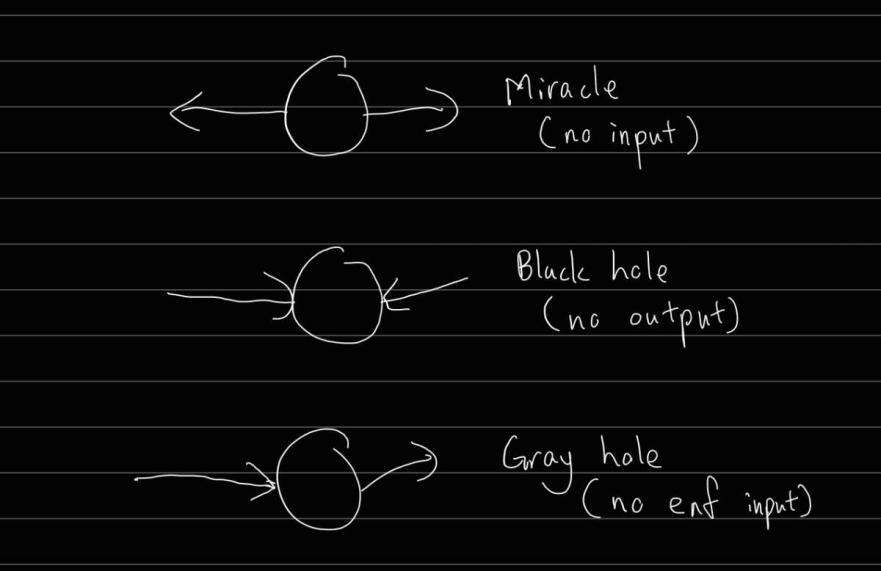 Miracle
(no input)
Black hole
(no output)
Gray hole
(no enf input)